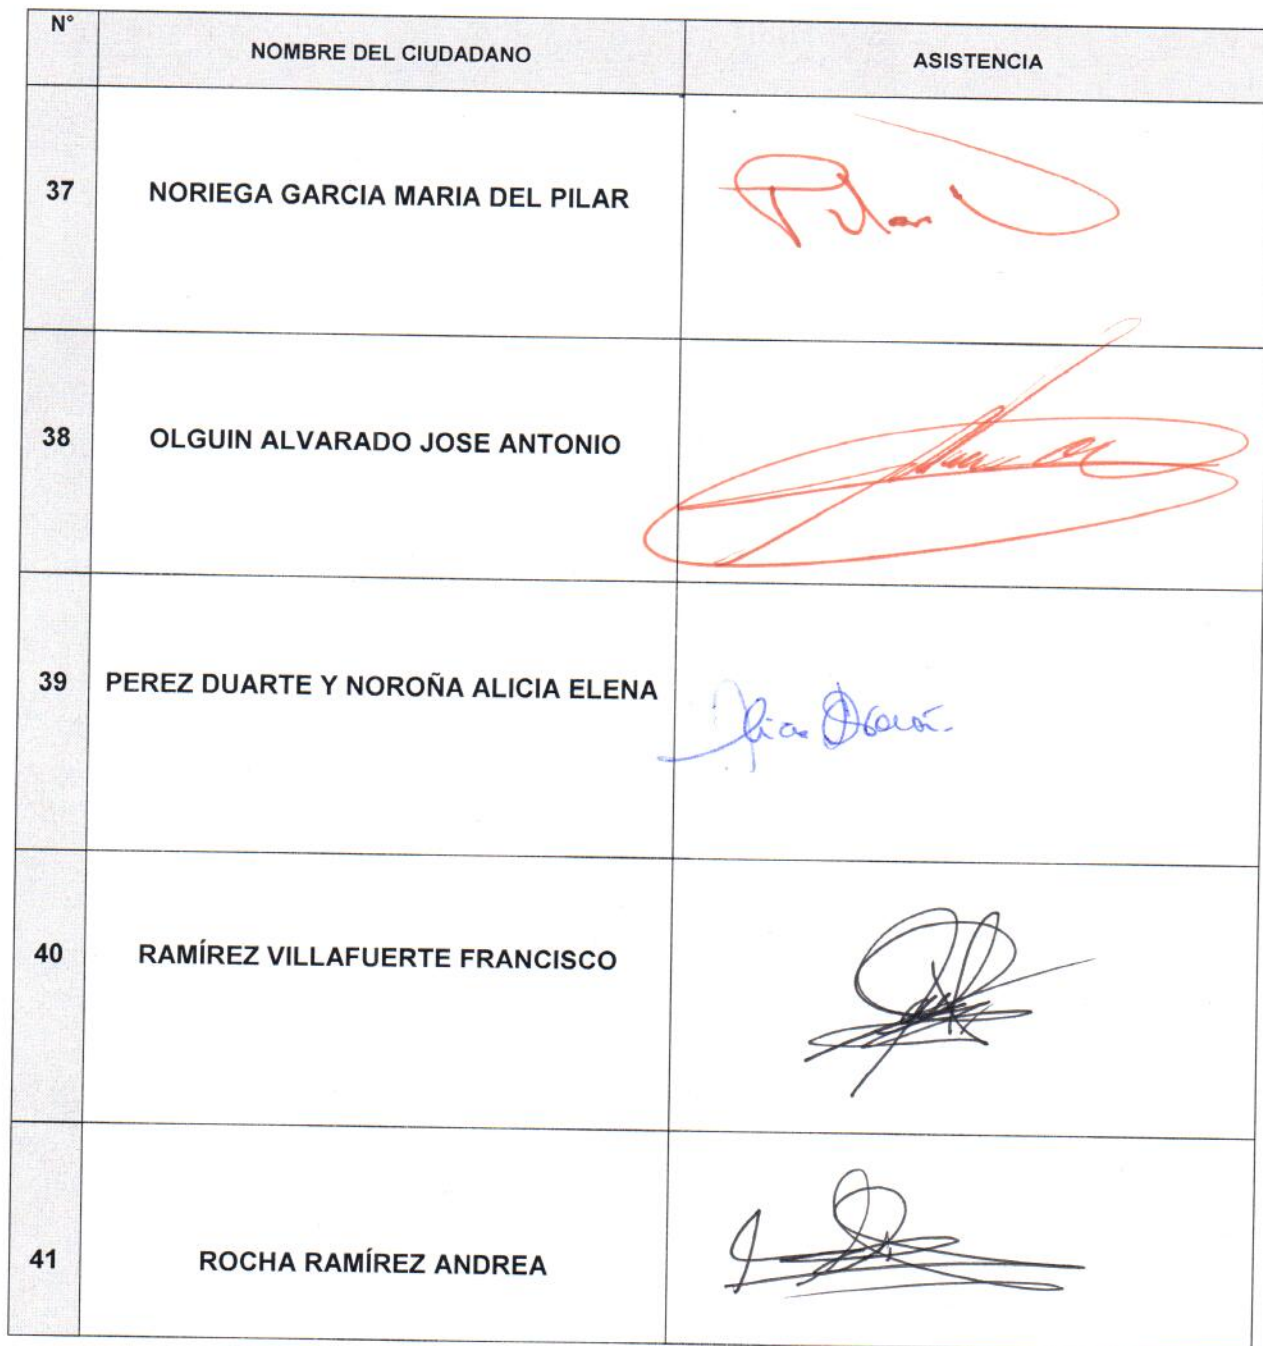 N°
NOMBRE DEL CIUDADANO
ASISTENCIA
37
NORIEGA GARCIA MARIA DEL PILAR
Pilar
38
OLGUIN ALVARADO JOSE ANTONIO
39
PEREZ DUARTE Y NOROÑA ALICIA ELENA
40
RAMÍREZ VILLAFUERTE FRANCISCO
41
ROCHA RAMÍREZ ANDREA